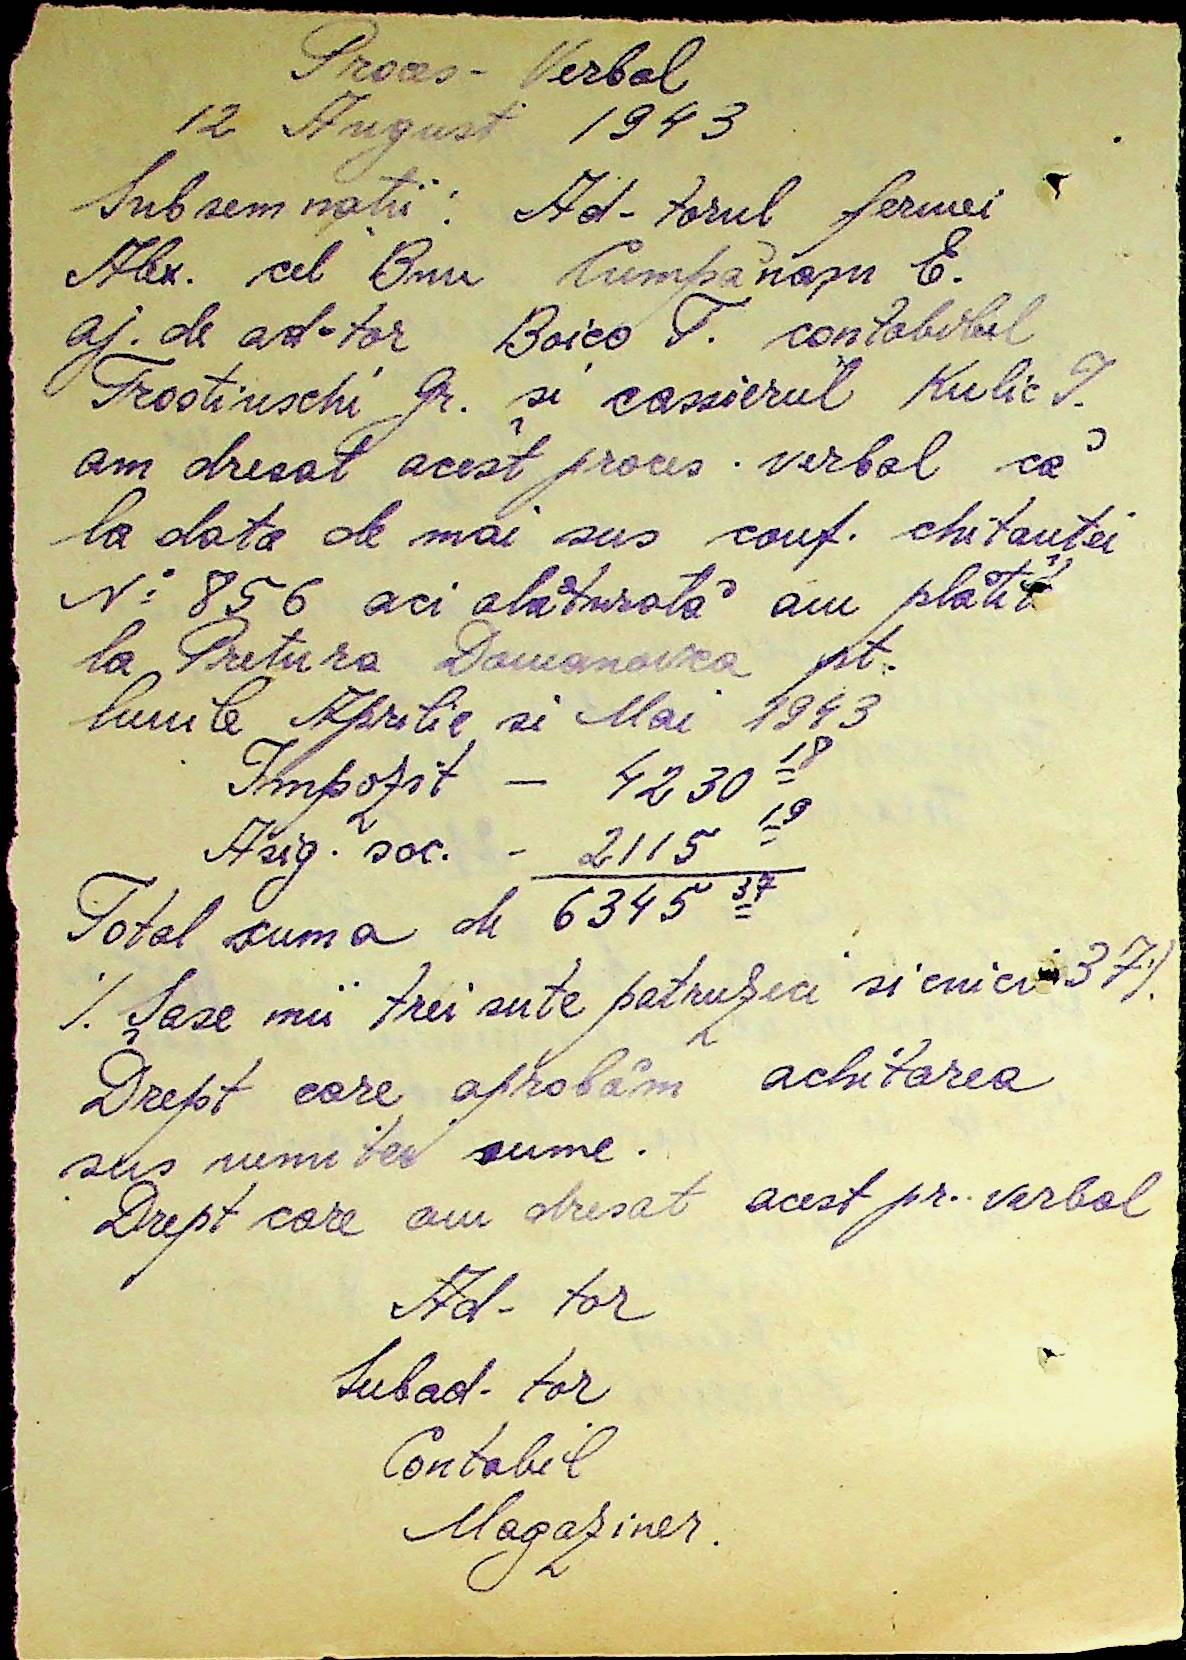 Proces - Verbal
12 August 1943
Subsemnatii: Ad-torul fermei
Alex. cel Bun Cumpănașu E.
aj. de ad-tor Boico T. contabilul
Trostinschi Gr. și cassierul Kulic T.
am dresat acest proces-verbal că
la data de mai sus conf. chitanței
Nº 856 aci alăturată am plătit
la Pretura Domanovca pt.
lunile Aprilie si Mai 1943
Impozit - 4230 18
Asig. soc. - 2115 19
Total suma de 6345 37
/. Șase mii trei sute patruzeci si cinci 37/.
Drept care aprobăm achitarea
sus numitei sume.
Drept care am dresat acest pr. verbal
Ad-tor
Subad-tor
Contabil
Magaziner.